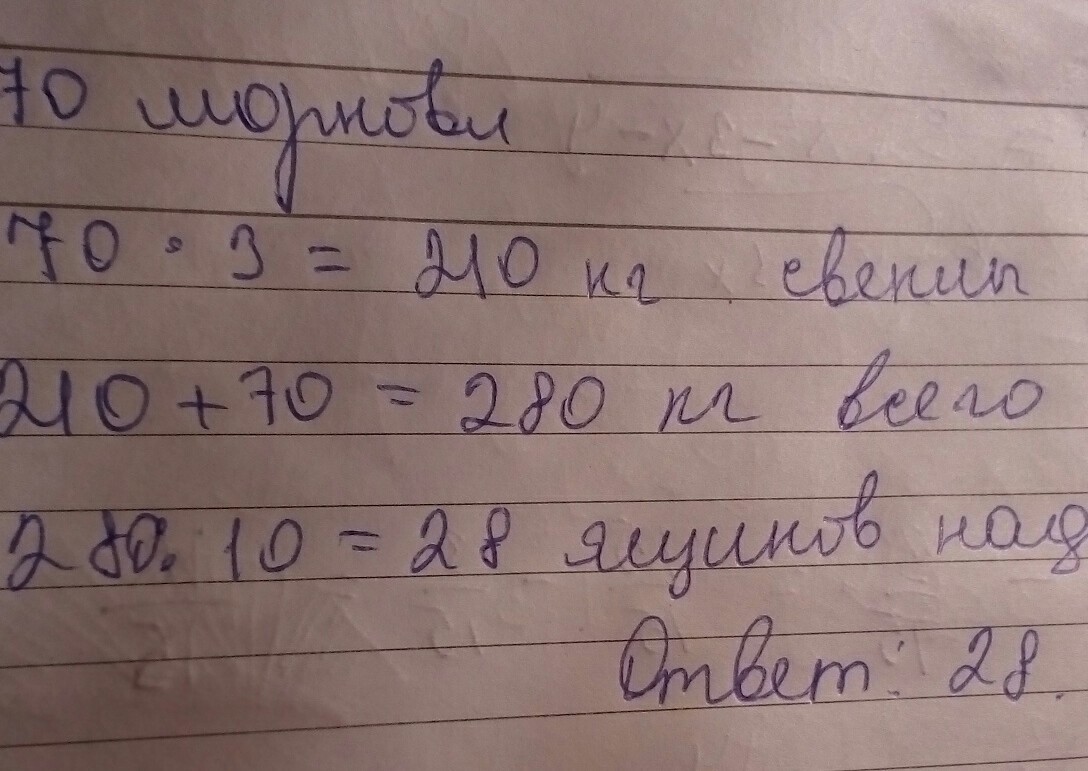 70 моркови
70 · 3 = 210 кг свеклы
210 + 70 = 280 кг всего
280 : 10 = 28 ящиков над
Ответ: 28.